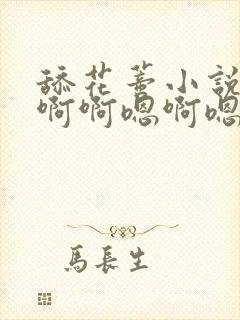 舔花蒂小说
啊啊嗯啊嗯
馬長生